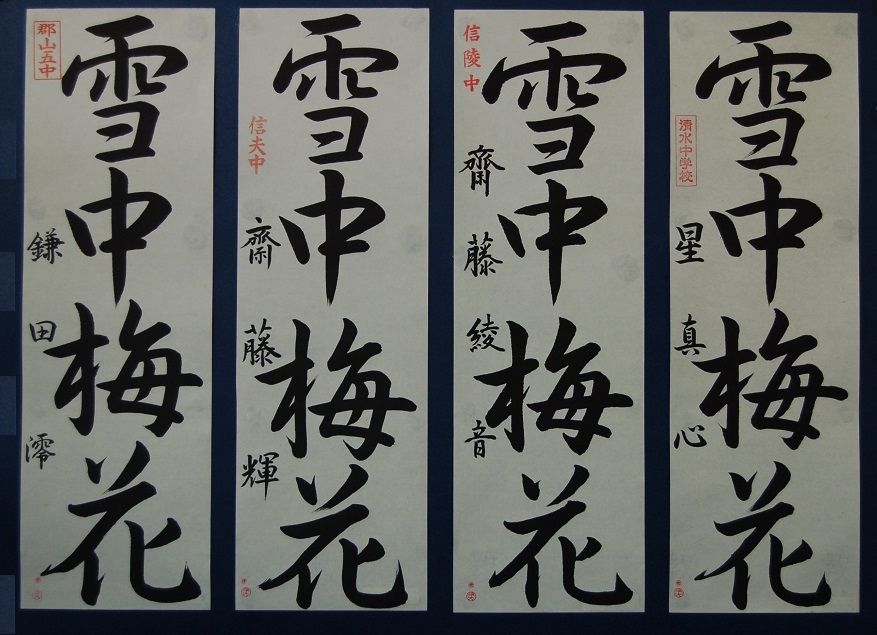 郡山五中
雪中梅花
鎌田澪
信夫中
雪中梅花
齋藤輝
信陵中
雪中梅花
齋藤綾音
清水中学校
雪中梅花
星真心